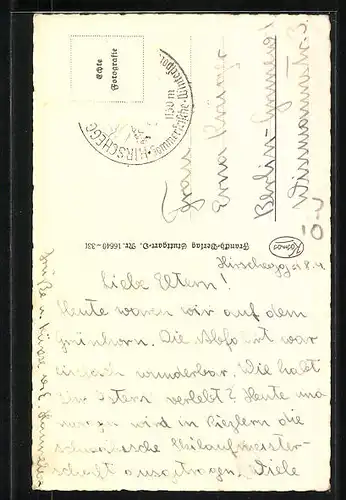 Echte
Fotografie
HIRSCHEGG
1150 m
Sommerfrische-Wintersport
Frau
Erna Krüger
Berlin-Grunewald
Ö.
Franckh-Verlag Stuttgart-O. Nr. 16640-331
Kosmos
Hirschegg
Liebe Eltern!
Heute waren wir auf dem
Grünhorn. Die Abfahrt war
einfach wunderbar. Wie habt
Ihr Ostern verlebt? Heute und
morgen wird in Riezlern die
schwäbische Skilaufmeister-
schaft ausgetragen. Viele
Grüße u. Küsse